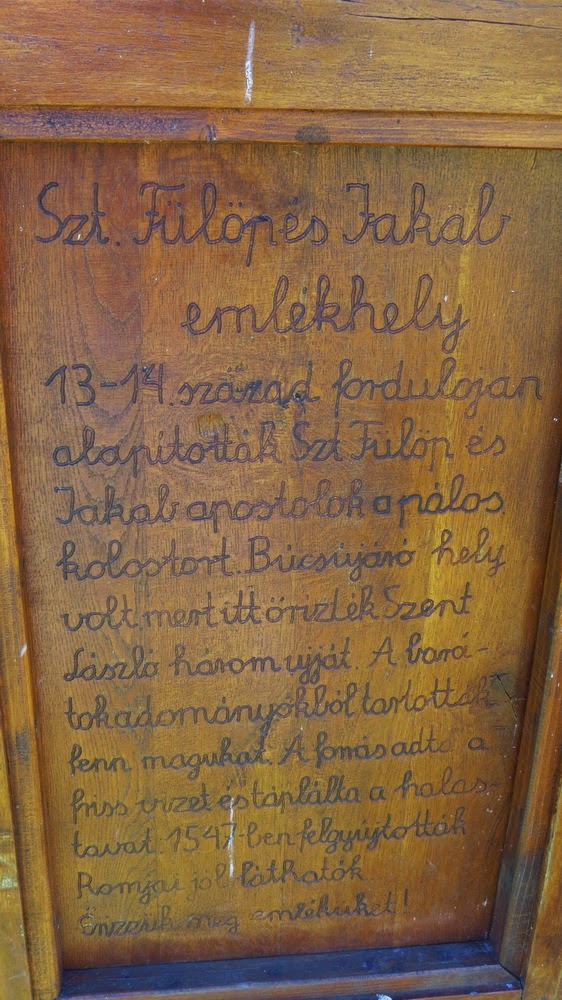 Szt. Fülöp és Jakab
emlékhely
13-14. század fordulóján
alapították Szt Fülöp és
Jakab apostolok a pálos
kolostort. Búcsújáró hely
volt, mert itt őrizték Szent
László három ujját. A bará-
tok adományokból tartották
fenn magukat. A forrás adta a
friss vizet és táplálta a halas-
tavat. 1547-ben felgyújtották
Romjai jól láthatók
Őrizzük meg emléküket!